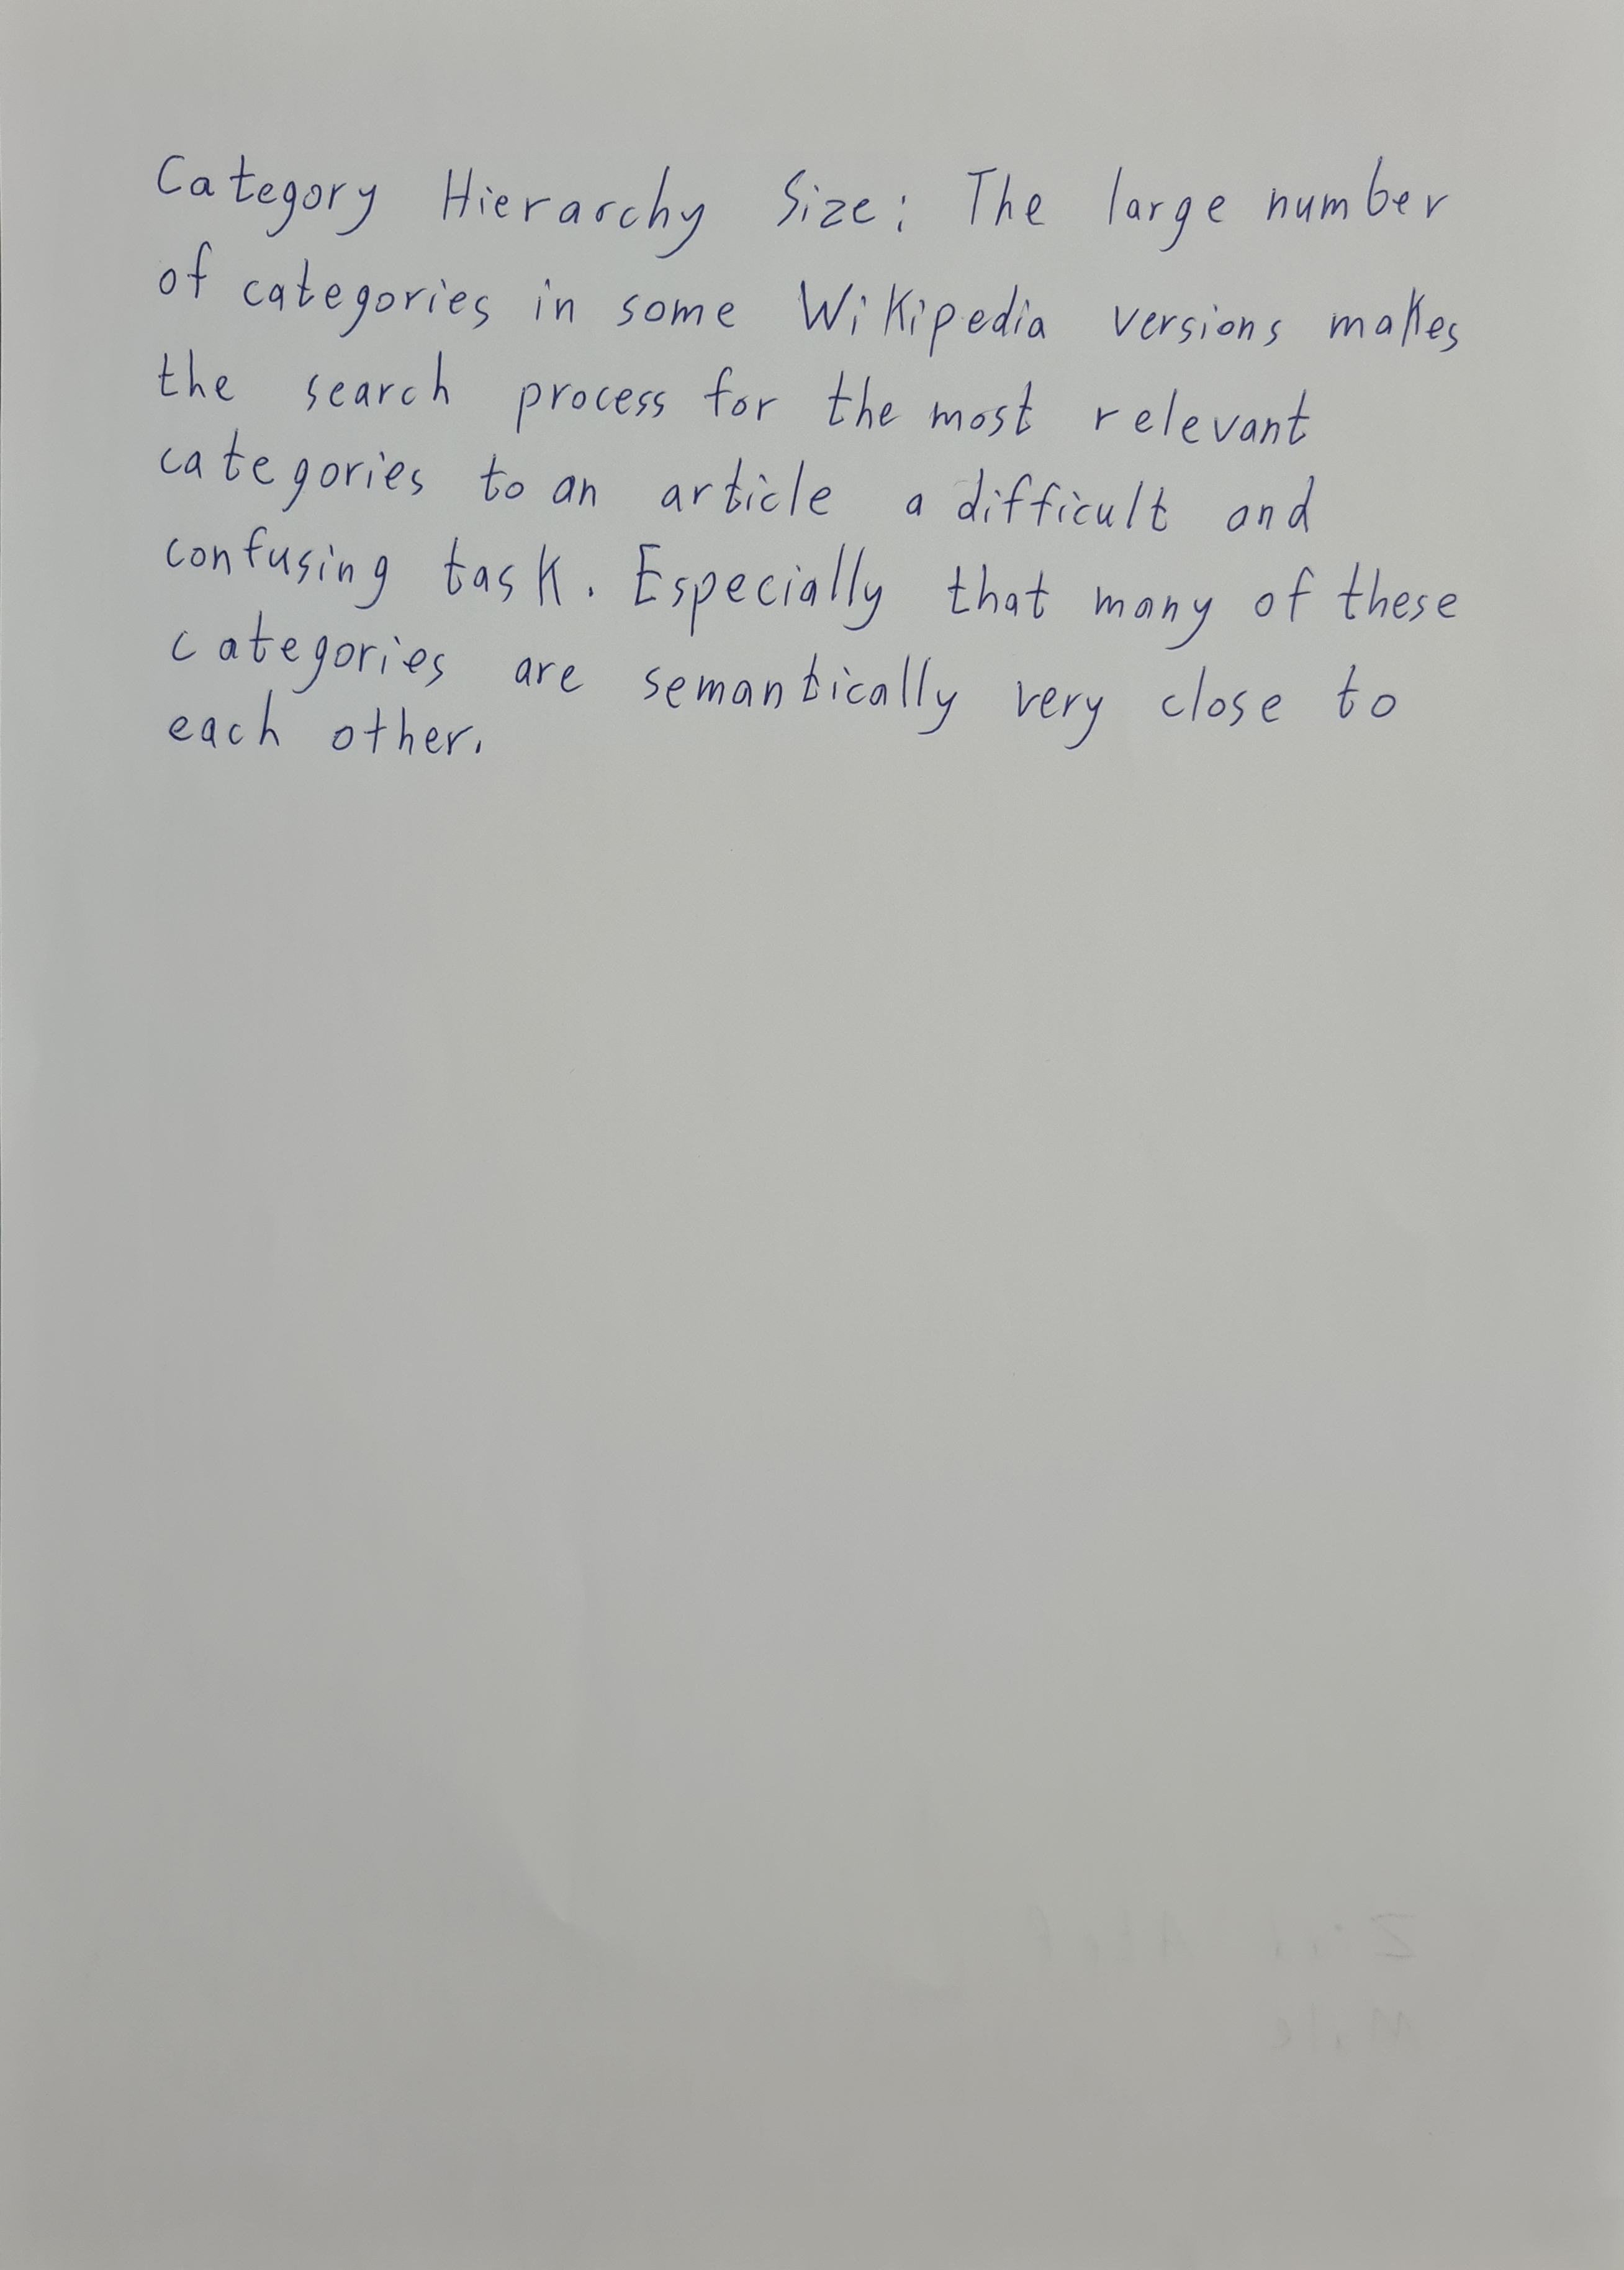 Category Hierarchy Size: The large number
of categories in some Wikipedia versions makes
the search process for the most relevant
categories to an article a difficult and
confusing task. Especially that many of these
categories are semantically very close to
each other.